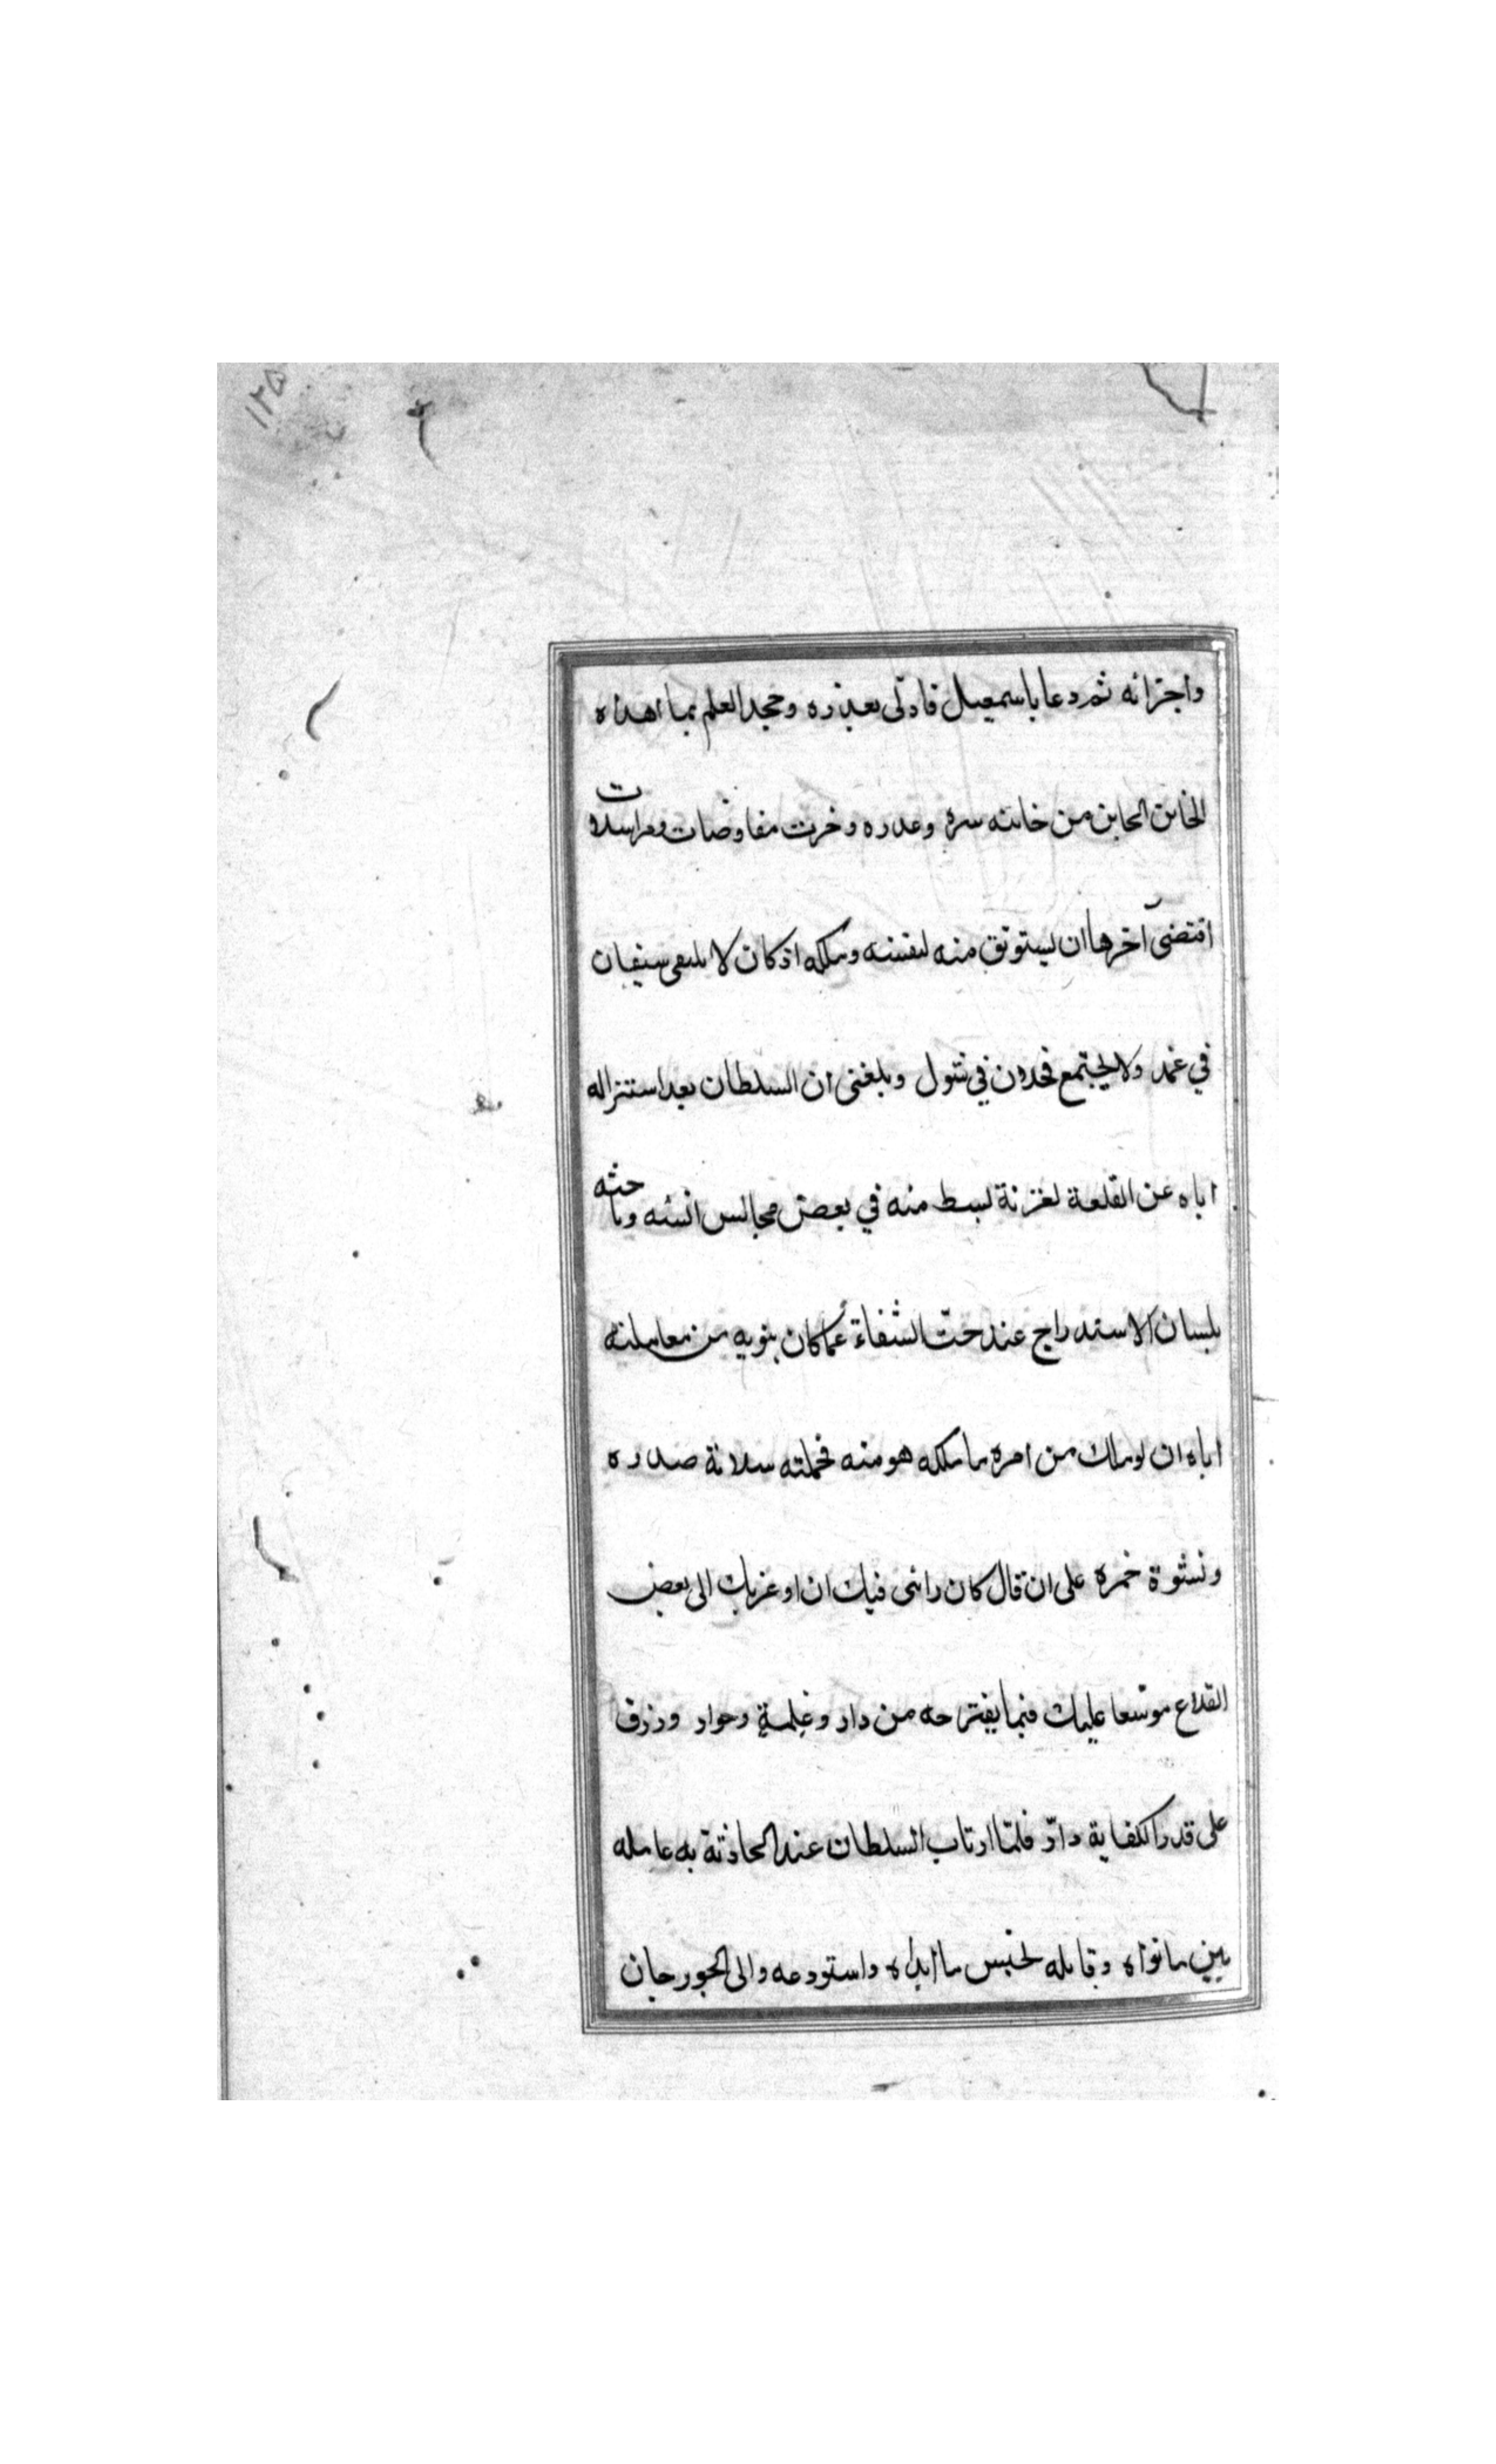 ١٢٥
واجترائه ثم دعا باسمعيل فادلى بعذره وجحد العلم بما اهداه
الخاين الحاين من خانته سره وغدره وجرت مفاوضات ومراسلات
اقتضى اخرها ان يستوثق منه لنفسه وملكه اذ كان لا يلتقى سيفان
في غمد ولا يجتمع فحلان في شول وبلغنى ان السلطان بعد استنزاله
اياه عن القلعة لغزنة بسط منه في بعض مجالس انسه وباحثه
بلسان الاستدراج عند حث السقاة عما كان ينويه من معاملته
اياه ان لو ملك من امره ما ملكه هو منه فحملته سلامة صدره
ونشوة خمره على ان قال كان رائى فيك ان اوعز بك الى بعض
القلاع موسعا عليك فيما يقترحه من دار وغلمة وجوار ورزق
على قدر الكفاية دار فلما ارتاب السلطان عند الحادثة به عامله
بين ما نواه وقابله بجنس ما ابداه واستودعه والى الجورجان